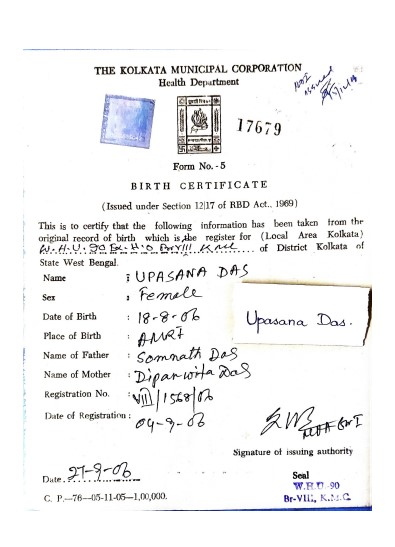 THE KOLKATA MUNICIPAL CORPORATION
Health Department
Not
issued
17679
Form No. - 5
BIRTH CERTIFICATE
(Issued under Section 12|17 of RBD Act., 1969)
This is to certify that the following information has been taken from the
original record of birth which is the register for (Local Area Kolkata)
W.H.U. 90 Ex. H.O Br VIII KMC of District Kolkata of
State West Bengal.
Name : UPASANA DAS
Sex : Female
Date of Birth : 18-8-06
Upasana Das.
Place of Birth : AMRI
Name of Father : Somnath Das
Name of Mother : Dipanwita Das
Registration No. : VIII/1568/06
Date of Registration : 04-9-06
Signature of issuing authority
Date 27-9-06
Seal
W.H.U.-90
Br-VIII, K.M.C.
C. P.—76—05-11-05—1,00,000.